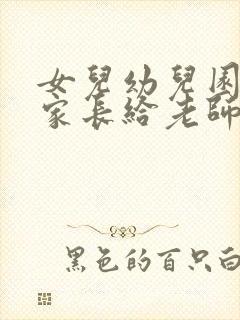 女兒幼兒園
家長給老師
黑色的百只白